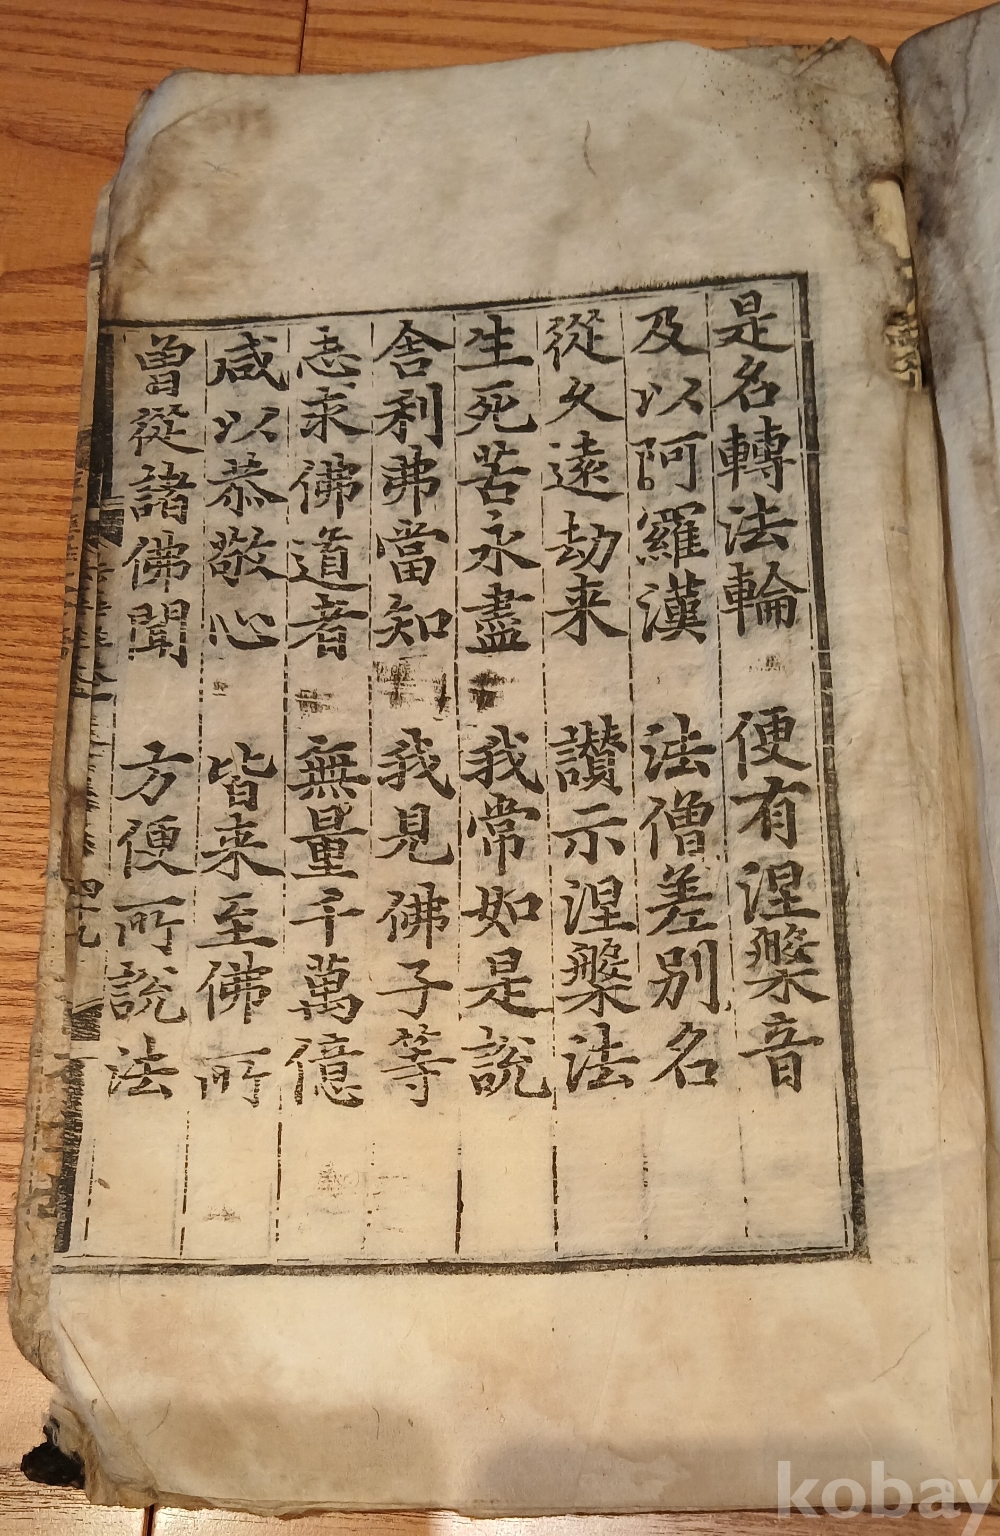 是名轉法輪 便有涅槃音
及以阿羅漢 法僧差別名
從久遠劫来 讃示涅槃法
生死苦永盡 我常如是說
舎利弗當知 我見佛子等
志求佛道者 無量千萬億
咸以恭敬心 皆来至佛所
曽從諸佛聞 方便所說法
四十九
kobay